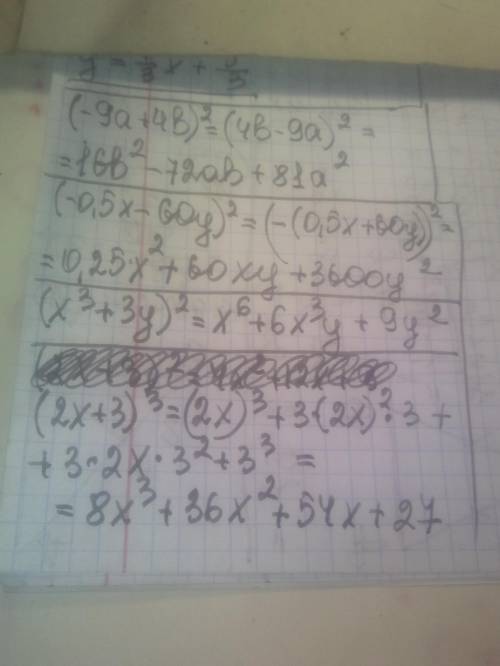 (-9a+4b)²=(4b-9a)²=
=16b²-72ab+81a²
(-0,5x-60y)²=(-(0,5x+60y))²=
=0,25x²+60xy+3600y²
(x³+3y)²=x⁶+6x³y+9y²
(2x+3)³=(2x)³+3·(2x)²·3+
+3·2x·3²+3³=
=8x³+36x²+54x+27